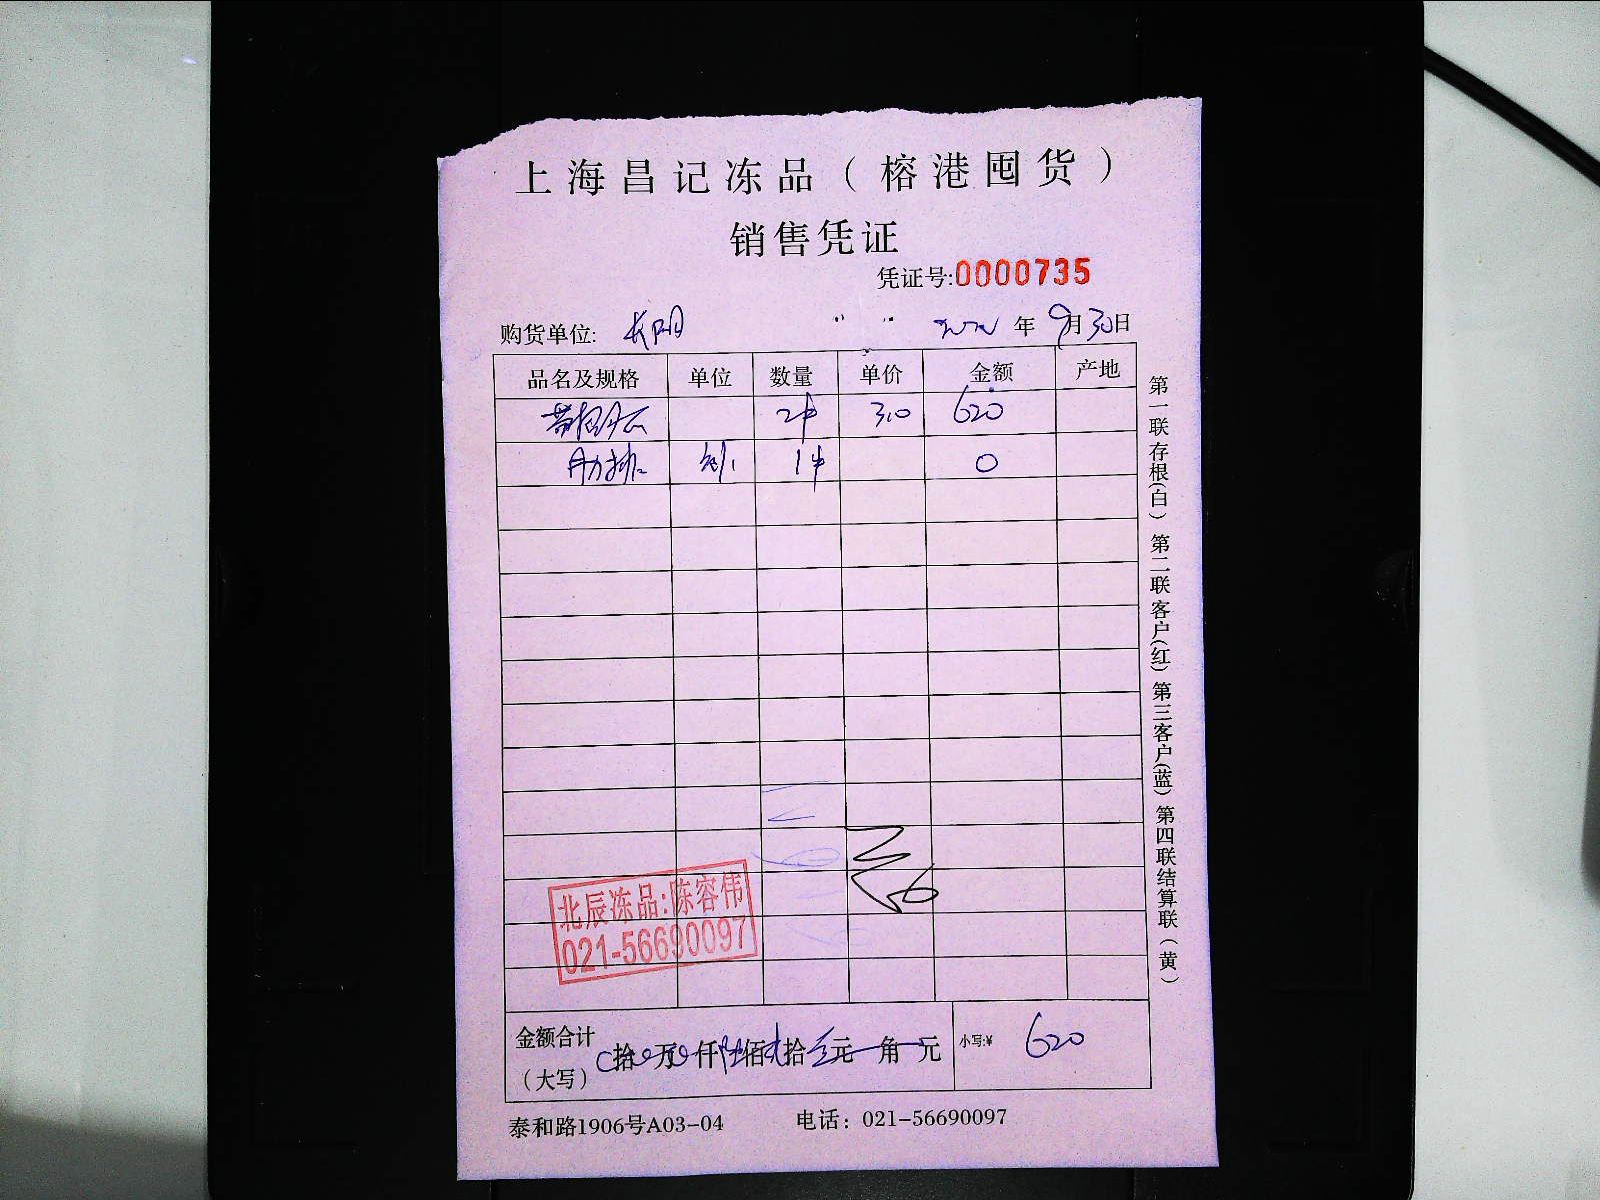 上海昌记冻品（榕港囤货）
销售凭证
凭证号:0000735
购货单位: 长阳 年 9月30日
品名及规格 单位 数量 单价 金额 产地
2件 310 620
肋排 1件 0
北辰冻品:陈容伟
021-56690097
金额合计（大写） 拾 万 仟陆佰贰拾 元 角 元 小写:¥ 620
泰和路1906号A03-04 电话：021-56690097
第一联存根(白) 第二联客户(红) 第三客户(蓝) 第四联结算联(黄)